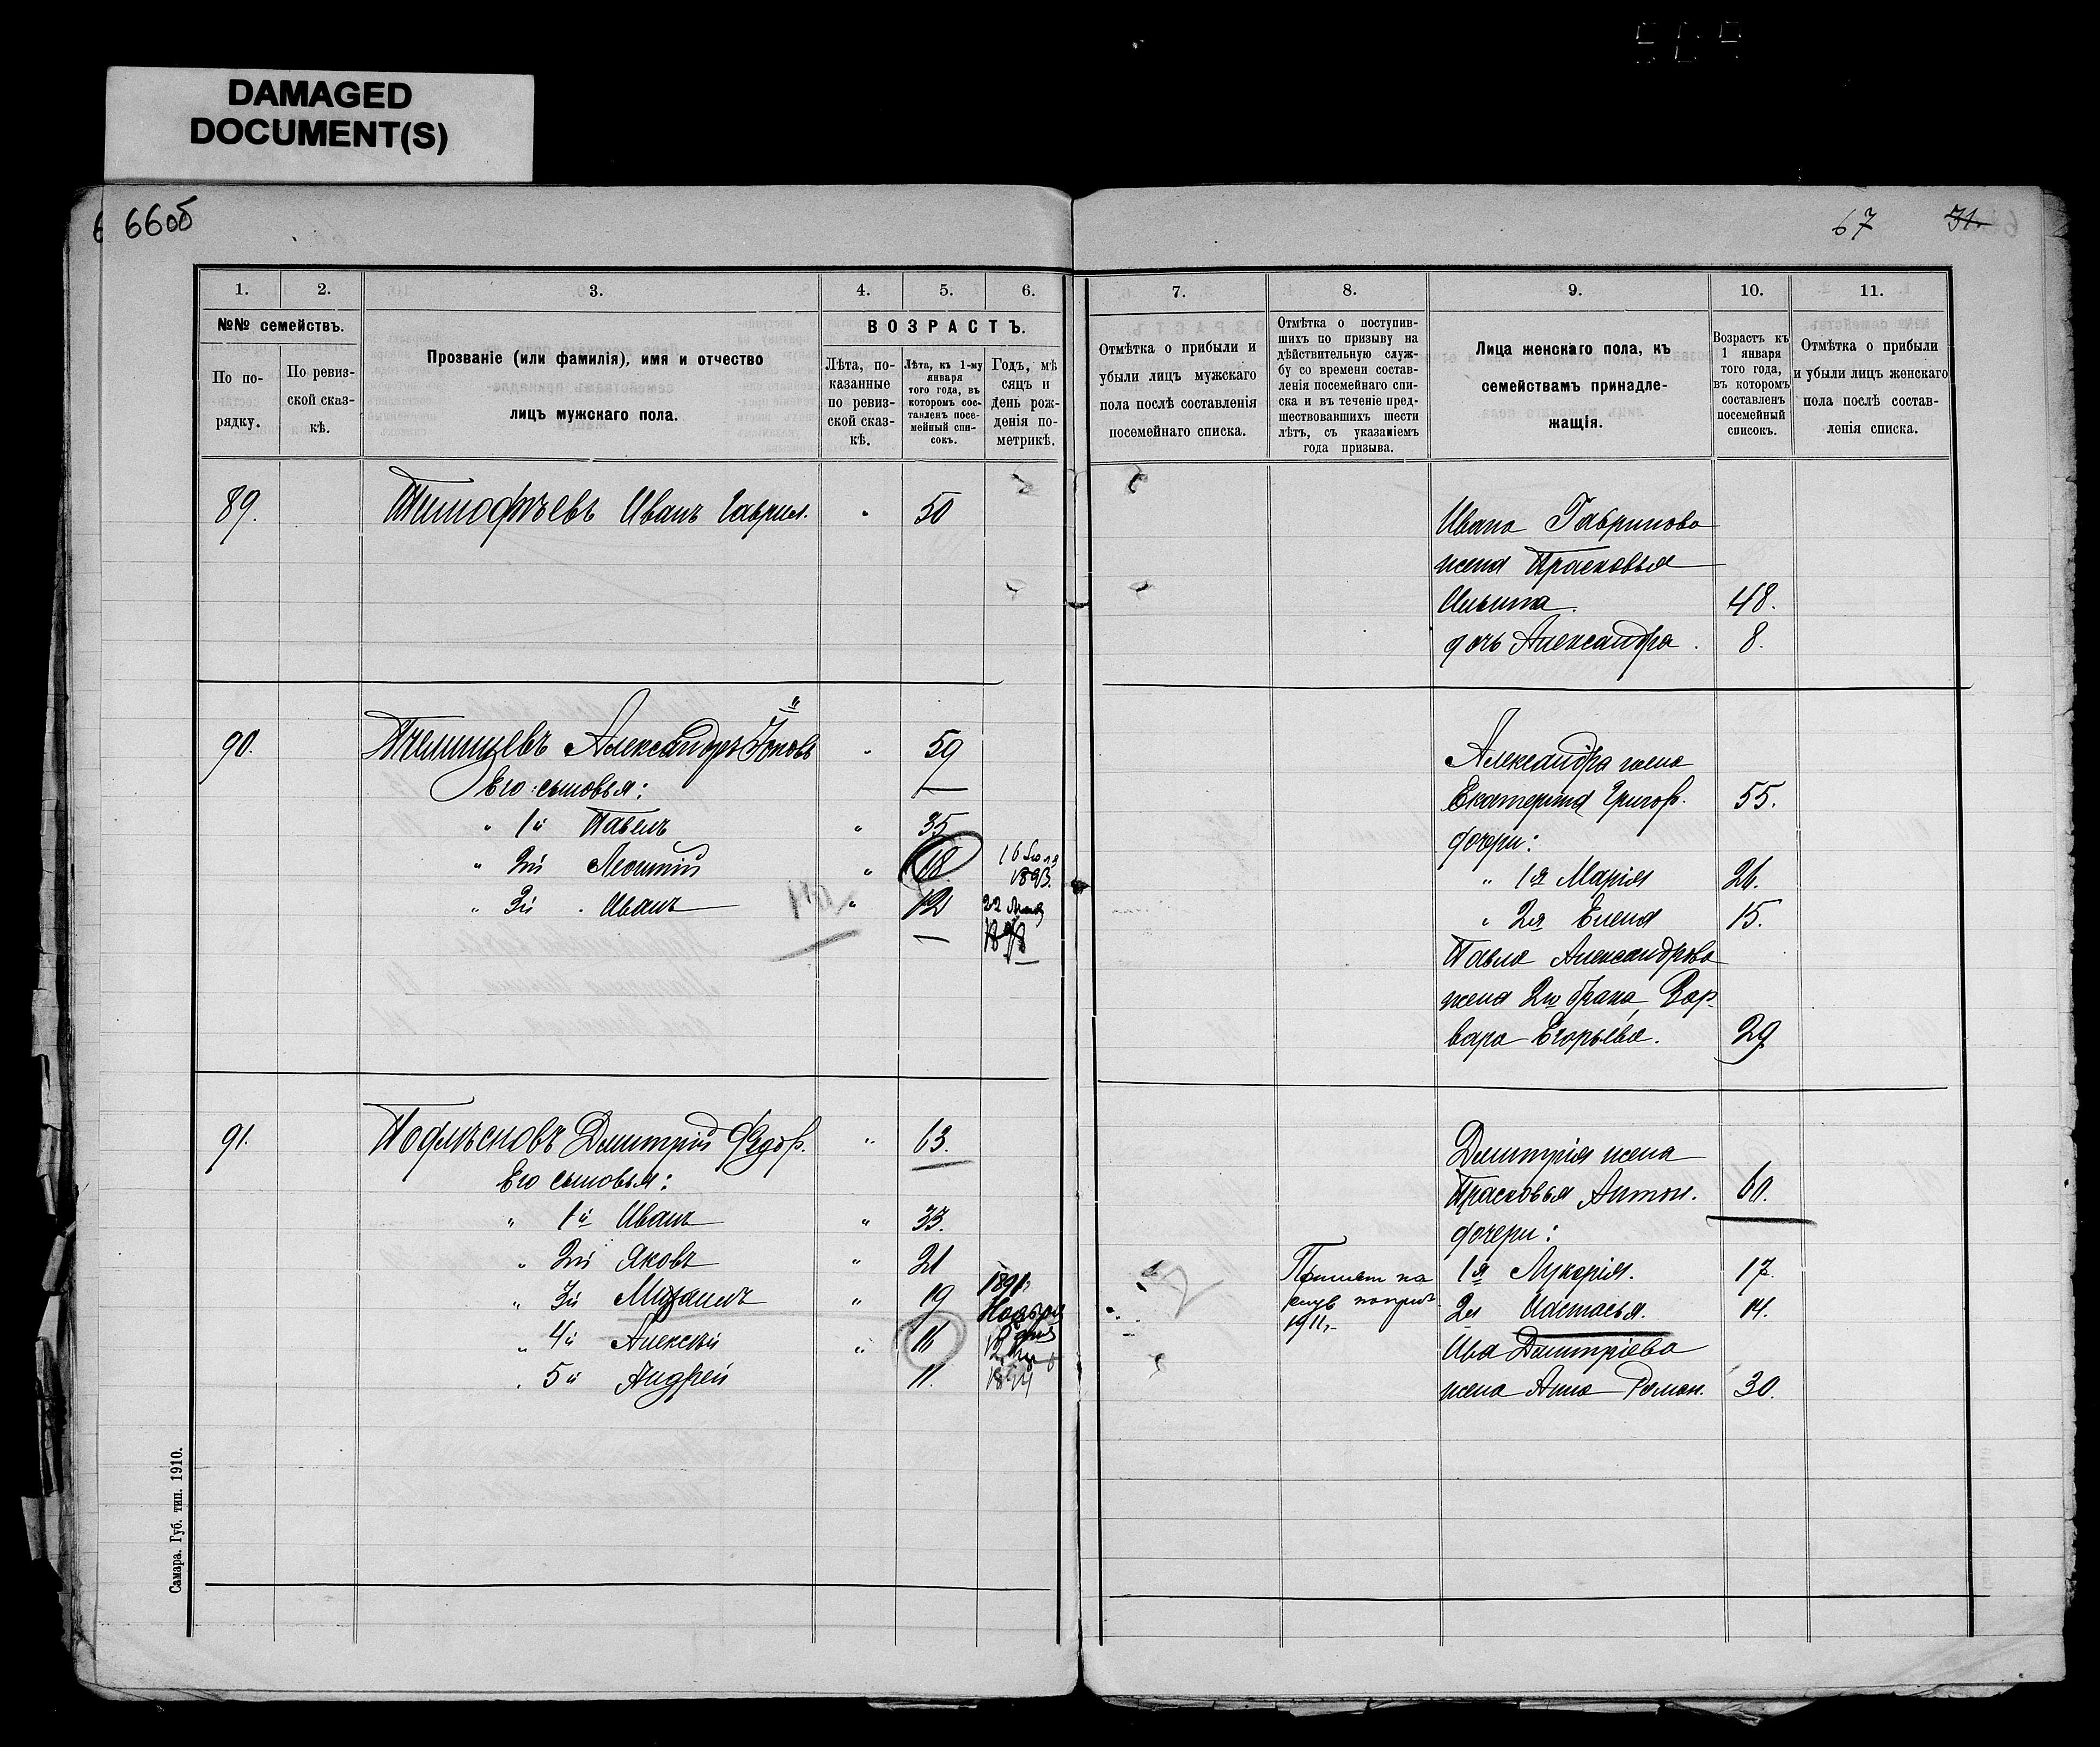 DAMAGED
DOCUMENT(S)
66об
67 31.
1. 2. 3. 4. 5. 6.
№№ семействъ.
По по-
рядку.
По ревиз-
ской сказ-
кѣ.
Прозваніе (или фамилія), имя и отчество
лицъ мужскаго пола.
ВОЗРАСТЪ.
Лѣта, по-
казанные
по ревиз-
ской сказ-
кѣ.
Лѣта, къ 1-му
января
того года, въ
которомъ сос-
тавленъ посе-
мейный спи-
сокъ.
Годъ, мѣ
сяцъ и
день рож-
денія по-
метрикѣ.
7. 8. 9. 10. 11.
Отмѣтка о прибыли и
убыли лицъ мужскаго
пола послѣ составленія
посемейнаго списка.
Отмѣтка о поступив-
шихъ по призыву на
дѣйствительную служ-
бу со времени состав-
ленія посемейнаго спи-
ска и въ теченіе пред-
шествовавшихъ шести
лѣтъ, съ указаніемъ
года призыва.
Лица женскаго пола, къ
семействамъ принадле-
жащія.
Возрастъ къ
1 января
того года,
въ которомъ
составленъ
посемейный
списокъ.
Отмѣтка о прибыли
и убыли лицъ женскаго
пола послѣ состав-
ленія списка.
89. Тимофѣевъ Иванъ Гаврил. " 50
Ивана Гаврилова
жена Прасковья
Ильина. 48.
дочь Александра. 8.
90. Александръ " 59
Его сыновья:
" 1й Павелъ " 35
" 2й Леонтій " 18. 16
1893.
" 3й Иванъ " 12 22
1898
Александра жена
Екатерина Григор. 55.
дочери:
" 1я Марія 26.
" 2я Елена 15.
Павла Александрова
жена 2го брака, Вар-
вара Егорьева. 29
91. Подлѣсновъ Дмитрій Ѳедор. " 63.
Его сыновья:
" 1й Иванъ " 33.
" 2й Яковъ " 21
" 3й Михаилъ " 19 1891
Ноября
" 4й Алексѣй " 16
" 5й Андрей 11. 1894
Дмитрія жена
Прасковья Антон. 60.
дочери:
1я Лукерія. 17.
2я Настасья. 14.
Ива Дмитріева
жена Анна Роман. 30.
Принят на
1911
Самара. Губ. тип. 1910.